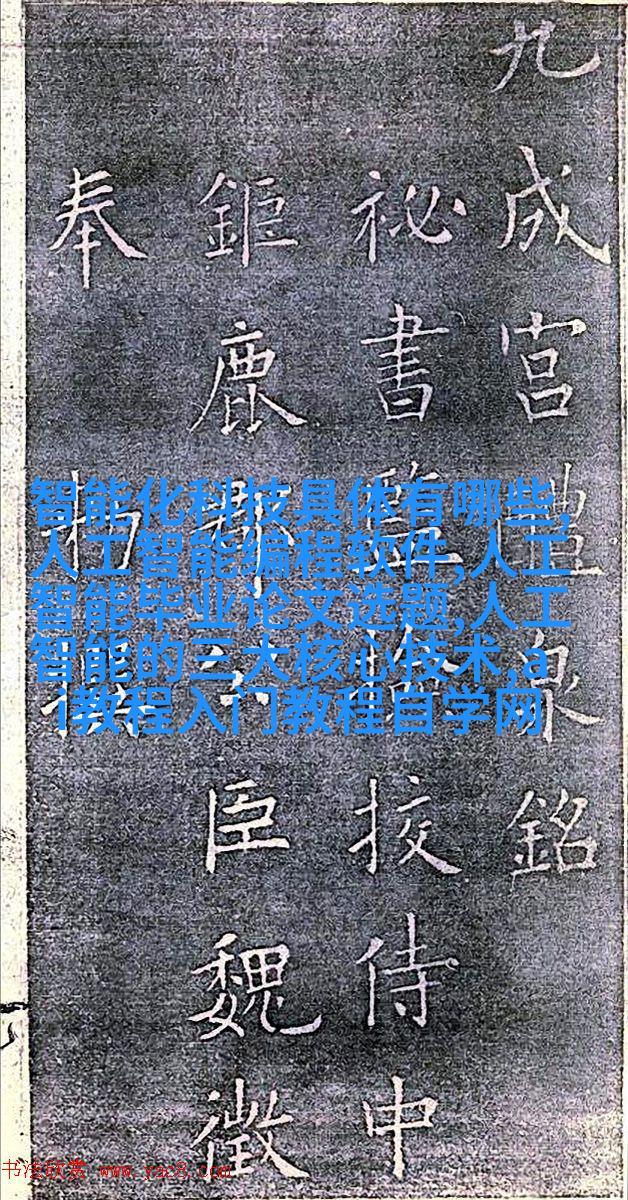 九成宮醴泉銘
祕書監挍侍中
鉅鹿郡公臣魏徵
奉
智能化科技具体有哪些,
人工智能编程软件,人工
智能毕业论文选题,人工
智能的三大核心技术,a
i教程入门教程自学网
书法欣赏 www.yac8.com